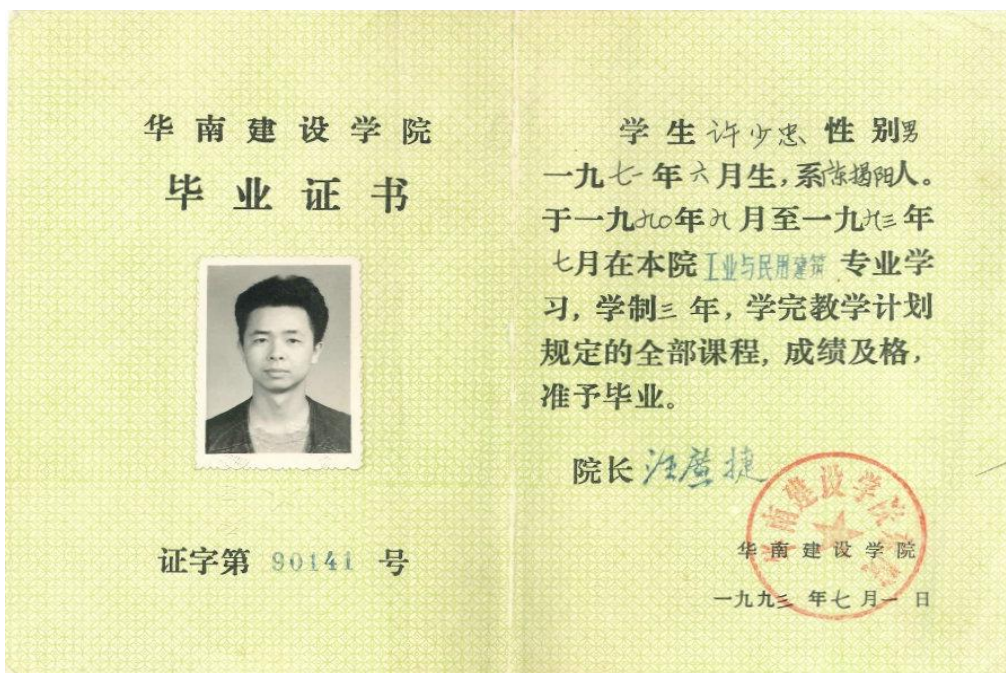 华南建设学院
毕业证书
证字第 90141 号
学生许少忠性别男
一九七一年六月生，系广东揭阳人。
于一九九〇年九月至一九九三年
七月在本院工业与民用建筑专业学
习，学制三年，学完教学计划
规定的全部课程，成绩及格，
准予毕业。
院长
华南建设学院
华南建设学院
一九九三年七月一日